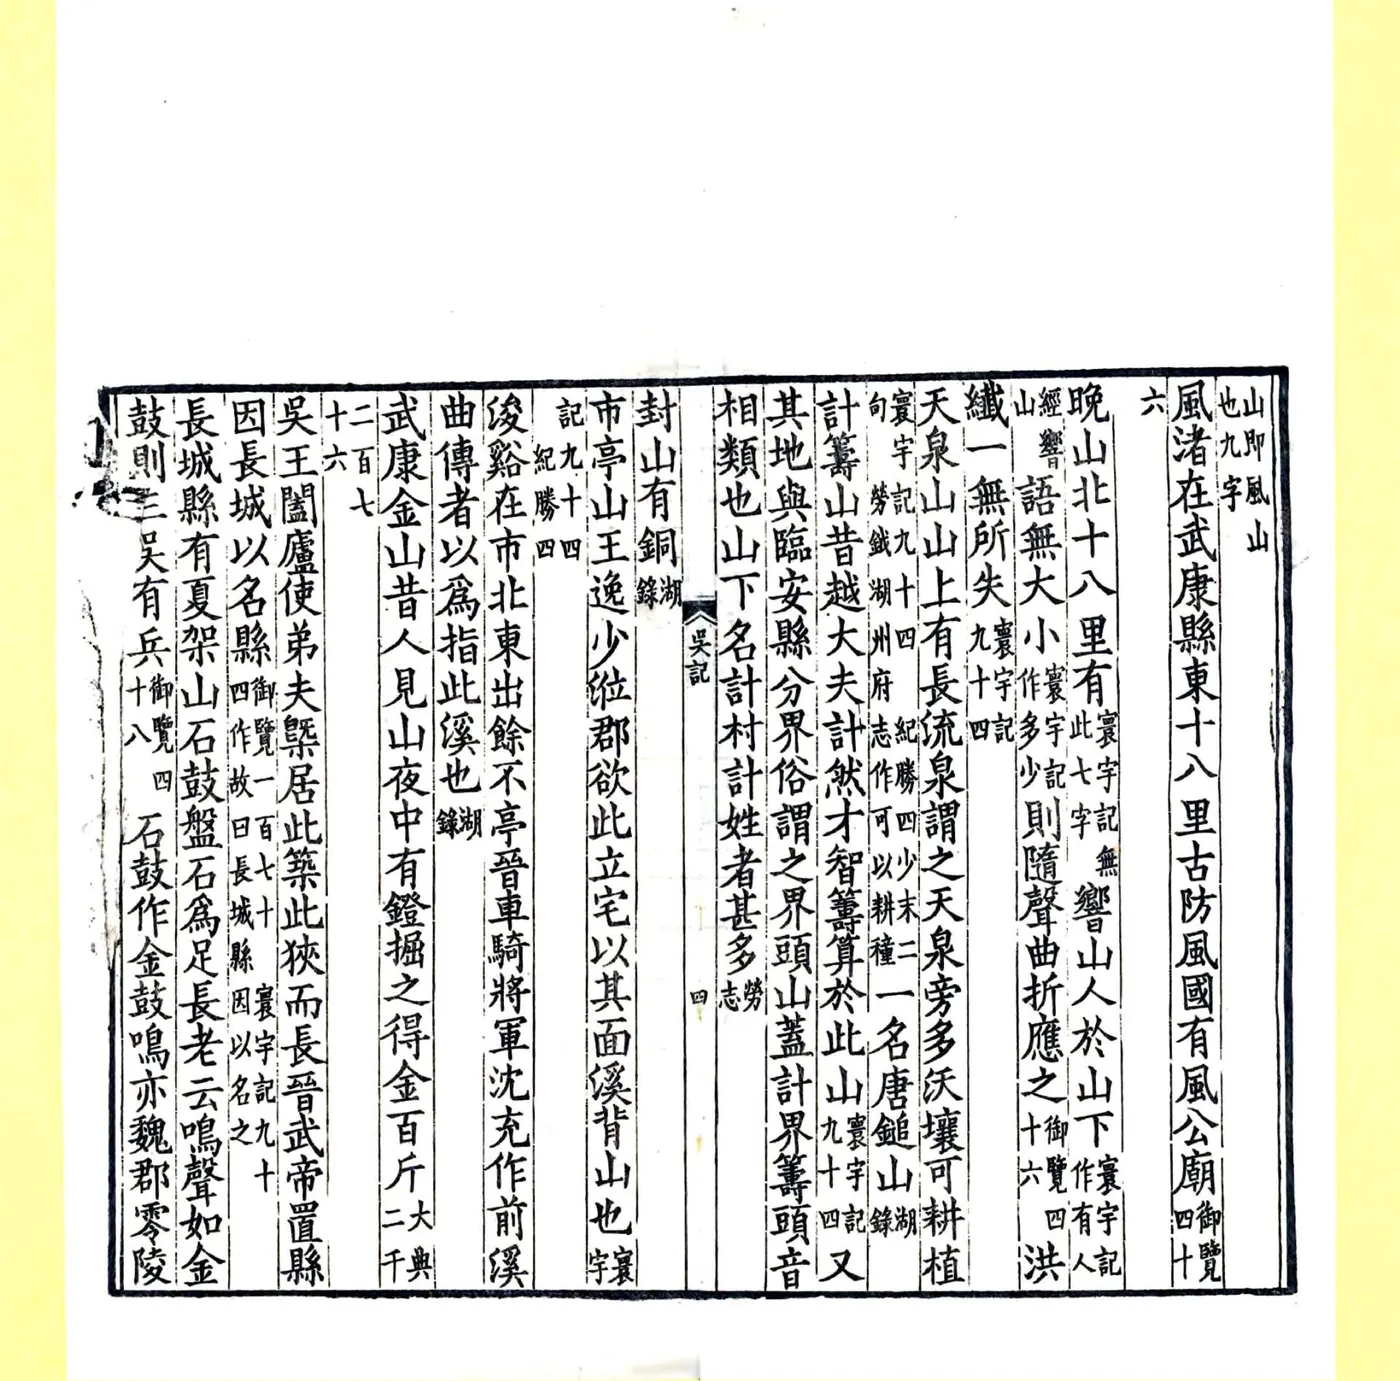 山即風山也九字
風渚在武康縣東十八里古防風國有風公廟御覽四十
六
晚山北十八里有寰宇記無此七字響山人於山下寰宇記作有人
經響山語無大小寰宇記作多少則隨聲曲折應之御覽四十六洪
纖一無所失寰宇記九十四
天泉山山上有長流泉謂之天泉旁多沃壤可耕植
寰宇記九十四 紀勝四少末二句 勞鉞湖州府志作可以耕種一名唐鎚山湖錄
計籌山昔越大夫計然才智籌算於此山寰宇記九十四又
其地與臨安縣分界俗謂之界頭山蓋計界籌頭音
相類也山下名計村計姓者甚多勞志
吳記 四
封山有銅湖錄
市亭山王逸少涖郡欲此立宅以其面溪背山也寰宇
記九十四紀勝四
浚谿在市北東出餘不亭晉車騎將軍沈充作前溪
曲傳者以爲指此溪也湖錄
武康金山昔人見山夜中有鐙掘之得金百斤大典二千
二百七十六
吳王闔廬使弟夫槩居此築此狹而長晉武帝置縣
因長城以名縣御覽一百七十 寰宇記九十四作故曰長城縣因以名之
長城縣有夏架山石鼓盤石爲足長老云鳴聲如金
鼓則三吳有兵御覽四十八 石鼓作金鼓鳴亦魏郡零陵